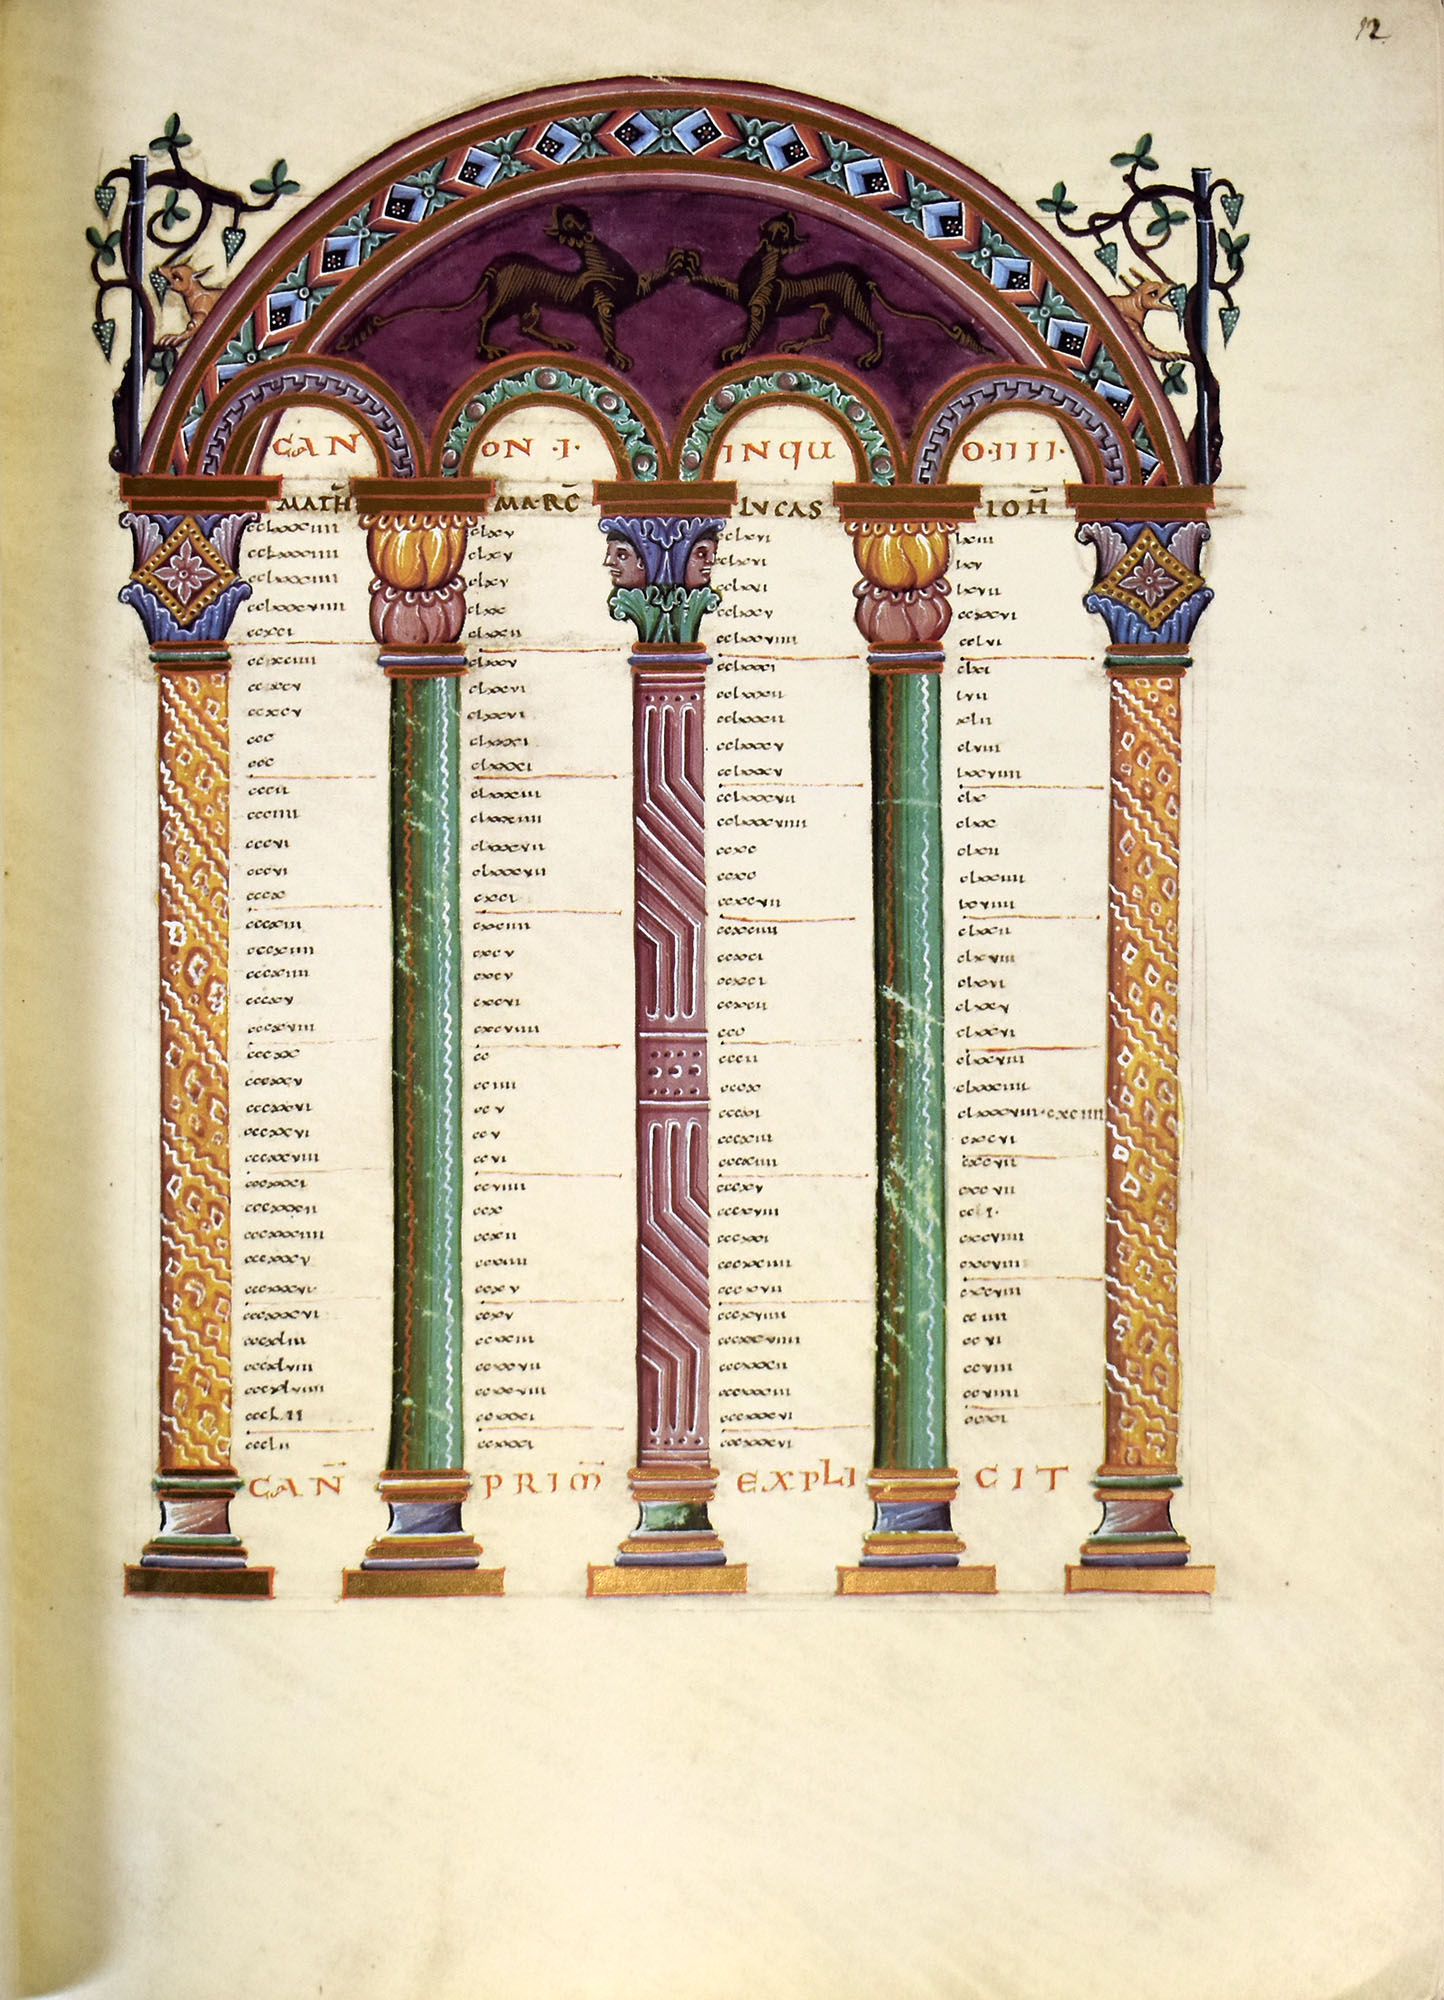 12
CAN ON ·I· IN QU O·IIII·
MATH̄
cclxxxiiii
cclxxxiiii
cclxxxiiii
cclxxxviiii
ccxci
ccxciiii
ccxcv
ccxcv
ccc
ccc
cccii
ccciiii
cccvi
cccvi
cccx
cccxiii
cccxiiii
cccxiiii
cccxv
cccxviii
cccxx
cccxxv
cccxxvi
cccxxvi
cccxxviii
cccxxxi
cccxxxii
cccxxxiiii
cccxxxv
cccxxxvi
cccxxxvi
cccxliii
cccxlviii
cccxlviiii
ccclii
ccclii
MARC̄
clxv
clxv
clxv
clxx
clxxii
clxxv
clxxvi
clxxvi
clxxxi
clxxxi
clxxxiii
clxxxiiii
clxxxvii
clxxxvii
cxci
cxciiii
cxcv
cxcv
cxcvi
cxcviiii
cc
cciiii
ccv
ccv
ccvi
ccviiii
ccx
ccxii
ccxiiii
ccxv
ccxv
ccxxiii
ccxxvii
ccxxviii
ccxxxi
ccxxxi
LVCAS
cclxvi
cclxvi
cclxvi
cclxxv
cclxxviiii
cclxxxi
cclxxxii
cclxxxii
cclxxxv
cclxxxv
cclxxxvii
cclxxxviiii
ccxc
ccxc
ccxcvii
ccxciiii
ccxci
ccxci
ccxcii
ccc
cccii
cccx
cccxi
cccxiii
cccxiiii
cccxv
cccxviii
cccxxi
cccxxiiii
cccxvii
cccxviiii
cccxxviiii
cccxxxii
cccxxxiii
cccxxxvi
cccxxxvi
IOH̄
lxiii
lxv
lxvii
ccxxvi
cclvi
clxi
lvii
xlii
clviii
lxxviiii
clx
clxx
clxii
clxxiiii
lxviiii
clxxii
clxviii
clxvi
clxxv
clxxvi
clxxviii
clxxxiiii
clxxxviii·cxciiii
cxcvi
cxcvii
cxcvii
cci·
cxcviiii
cxcviii
cxcviii
cciiii
ccvi
ccviii
ccviiii
ccxi
CAN̄ PRIM̄ EXPLI CIT